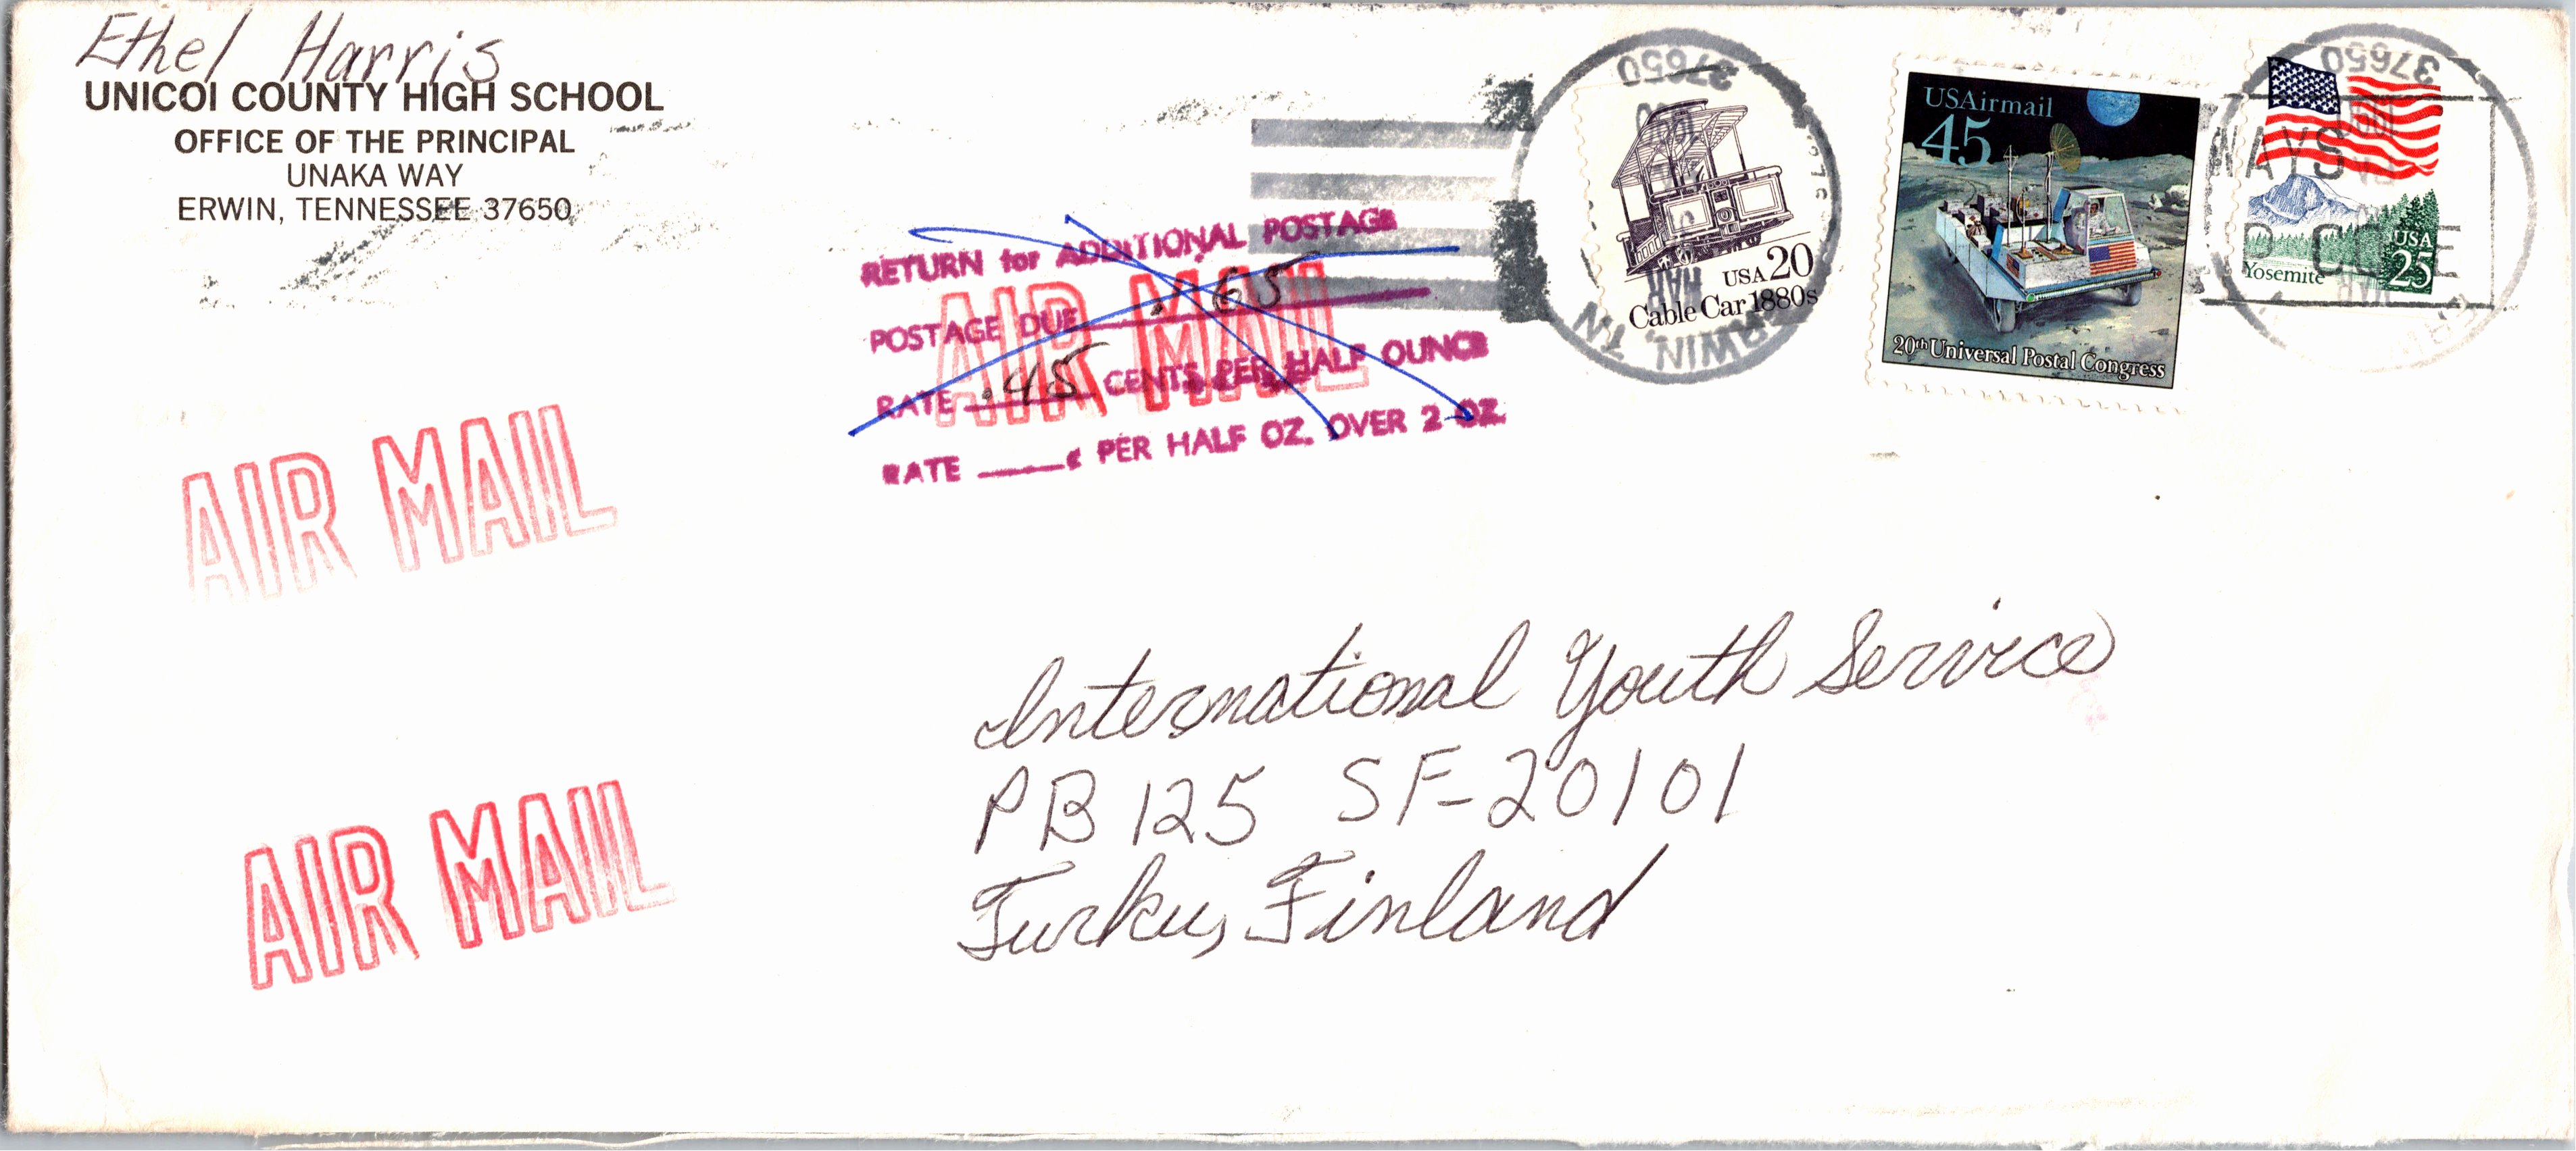 Ethel Harris
UNICOI COUNTY HIGH SCHOOL
OFFICE OF THE PRINCIPAL
UNAKA WAY
ERWIN, TENNESSEE 37650
RETURN for ADDITIONAL POSTAGE
POSTAGE DUE .65
RATE .45 CENTS PER HALF OUNCE
RATE ____¢ PER HALF OZ. OVER 2 OZ.
AIR MAIL
37650
MAR
ERWIN, TN
USA 20
Cable Car 1880s
USAirmail
45
20th Universal Postal Congress
37650
MAR
WAYS
Yosemite
USA
25
AIR MAIL
AIR MAIL
International Youth Service
PB 125 SF-20101
Turku, Finland